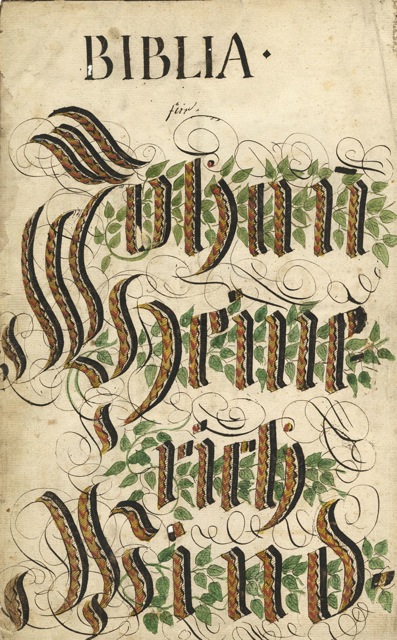 BIBLIA.
für
Johan̄
Heinr-
rich
Wind-